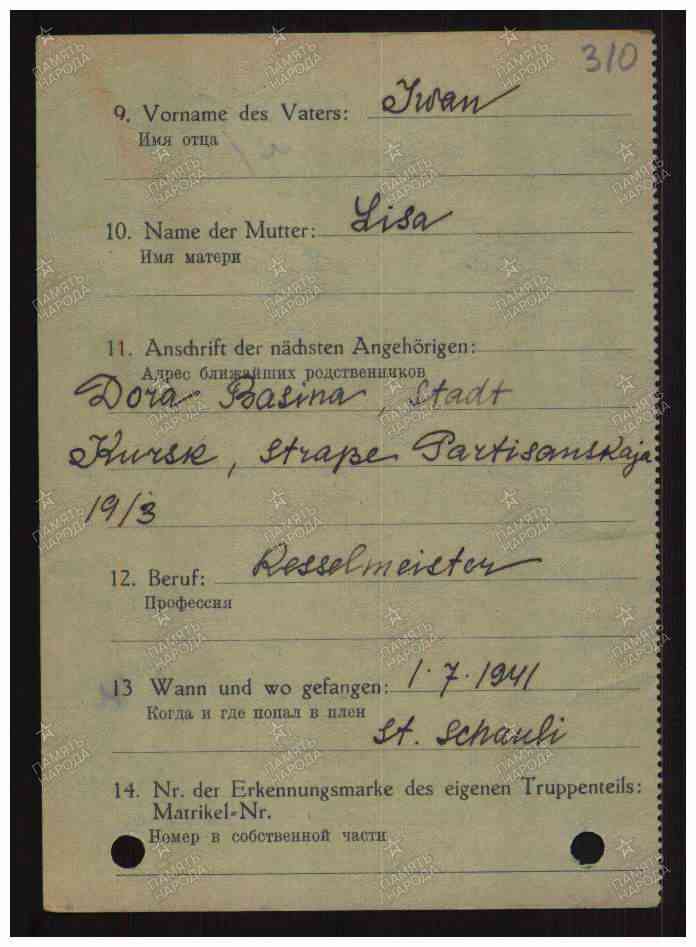 310
9. Vorname des Vaters: Iwan
Имя отца
10. Name der Mutter: Lisa
Имя матери
11. Anschrift der nächsten Angehörigen:
Адрес ближайших родственников
Dora Basina, Stadt
Kursk, Straße Partisanskaja
19/3
12. Beruf: Kesselmeister
Профессия
13 Wann und wo gefangen: 1.7.1941
Когда и где попал в плен
St. Schauli
14. Nr. der Erkennungsmarke des eigenen Truppenteils:
Matrikel-Nr.
Номер в собственной части
ПАМЯТЬ
НАРОДА